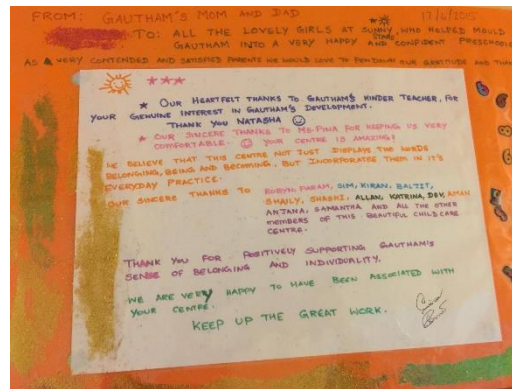 FROM: GAUTHAM'S MOM AND DAD
17/6/2015
TO: ALL THE LOVELY GIRLS AT SUNNY STARS, WHO HELPED MOULD
GAUTHAM INTO A VERY HAPPY AND CONFIDENT PRESCHOOL
AS A VERY CONTENDED AND SATISFIED PARENTS WE WOULD LOVE TO PEN DOWN OUR GRATITUDE AND THAN
OUR HEARTFELT THANKS TO GAUTHAM'S KINDER TEACHER, FOR
YOUR GENUINE INTEREST IN GAUTHAM'S DEVELOPMENT.
THANK YOU NATASHA
OUR SINCERE THANKS TO MS. PINA FOR KEEPING US VERY
COMFORTABLE. YOUR CENTRE IS AMAZING!
WE BELIEVE THAT THIS CENTRE NOT JUST DISPLAYS THE WORDS
BELONGING, BEING AND BECOMING, BUT INCORPORATES THEM IN IT'S
EVERYDAY PRACTICE.
OUR SINCERE THANKS TO ROBYN, PARAM, SIM, KIRAN, BALJIT,
SHAILY, SHASHI, ALLAN, KATRINA, DEV, AMAN
ANJANA, SAMANTHA AND ALL THE OTHER
MEMBERS OF THIS BEAUTIFUL CHILDCARE
CENTRE.
THANK YOU FOR POSITIVELY SUPPORTING GAUTHAM'S
SENSE OF BELONGING AND INDIVIDUALITY.
WE ARE VERY HAPPY TO HAVE BEEN ASSOCIATED WITH
YOUR CENTRE.
KEEP UP THE GREAT WORK.